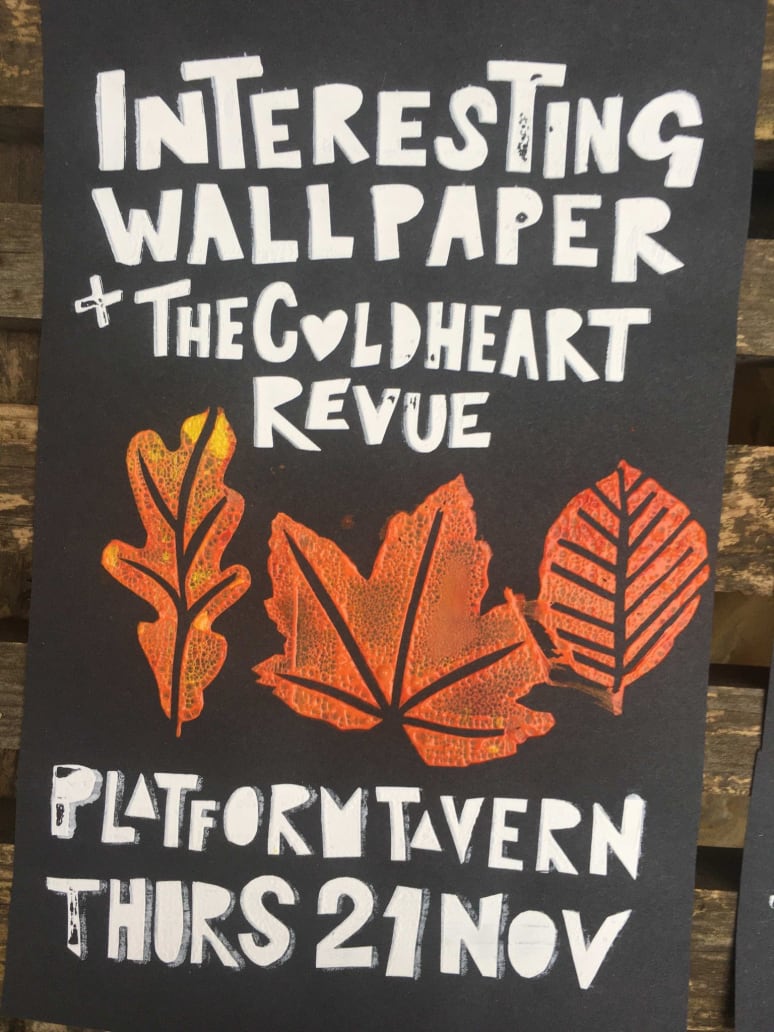 INTERESTING
WALLPAPER
+ THE C♥LDHEART
REVUE
PLATFORM TAVERN
THURS 21 NOV